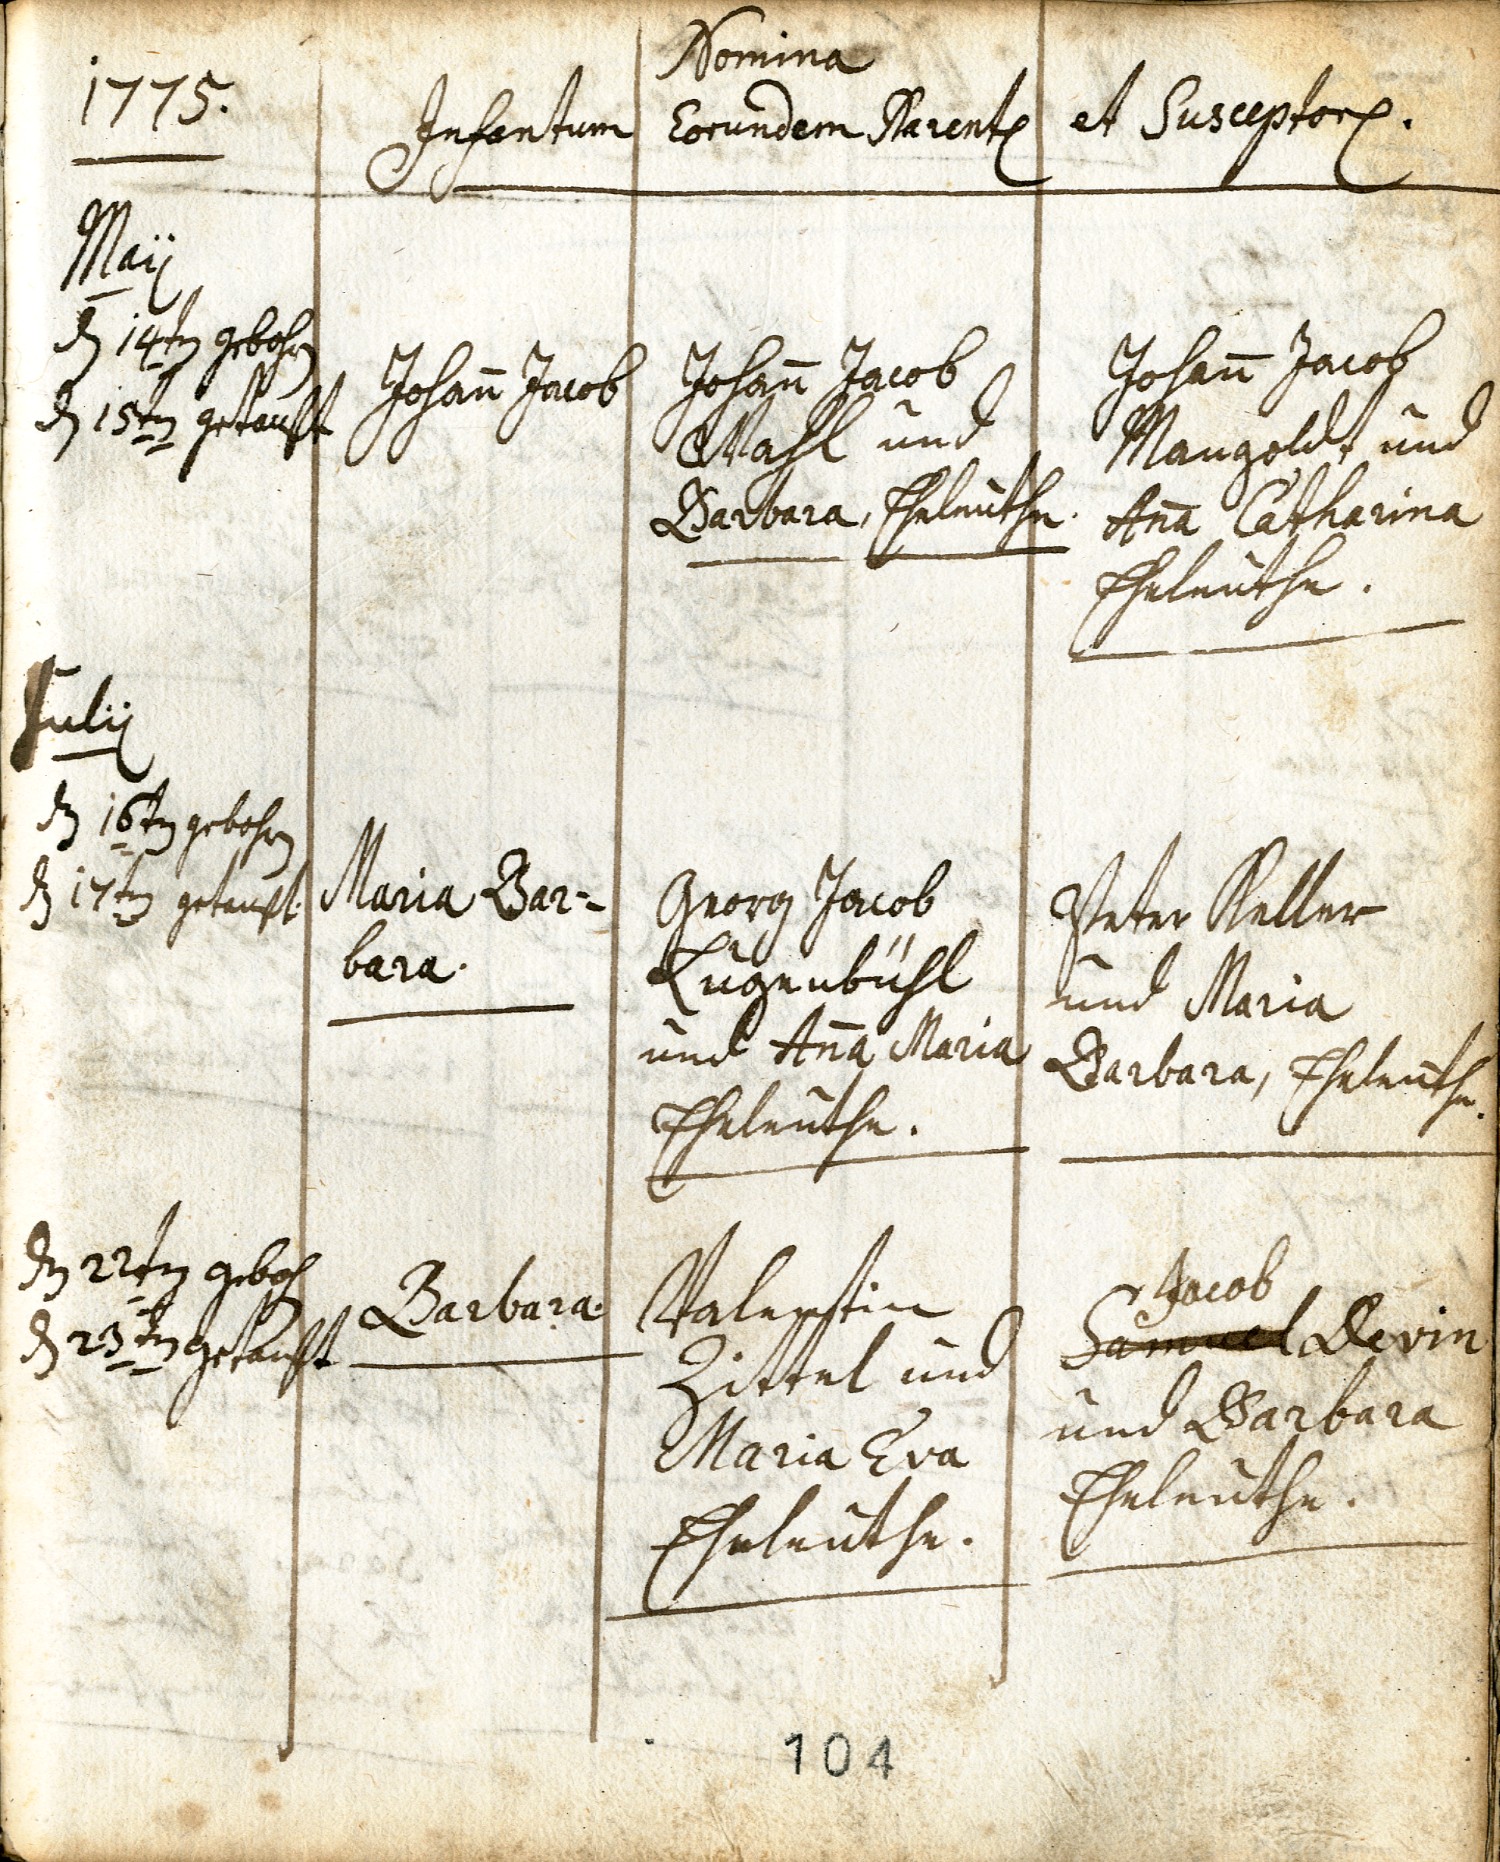 1775.
Nomina
Infantum Eorundem Parent. et Susceptor.
Maÿ
d 14tn gebohrn
d 15tn getaufft
Johan̄ Jacob
Johan̄ Jacob
Wahl und
Barbara, Eheleuthe.
Johan̄ Jacob
Mangoldt und
An̄a Catharina
Eheleuthe.
Julÿ
d 16tn gebohrn
d 17tn getaufft.
Maria Bar-
bara.
Georg Jacob
Lugenbühl
und An̄a Maria
Eheleuthe.
Peter Keller
und Maria
Barbara, Eheleuthe.
dn 22tn geboh
d 23tn getaufft
Barbara.
Valentin
Zittel und
Maria Eva
Eheleuthe.
Jacob
Samuel Devin
und Barbara
Eheleuthe.
104